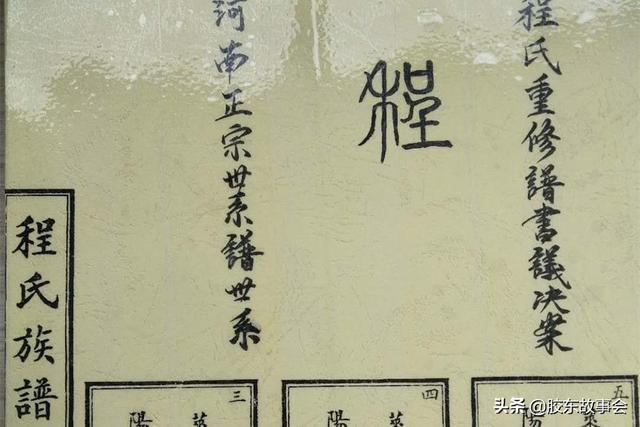 程氏重修譜書議决案
程
河南正宗世系譜世系
程氏族譜
五
萊
陽
四
萊
陽
三
萊
陽
头条 @胶东故事会